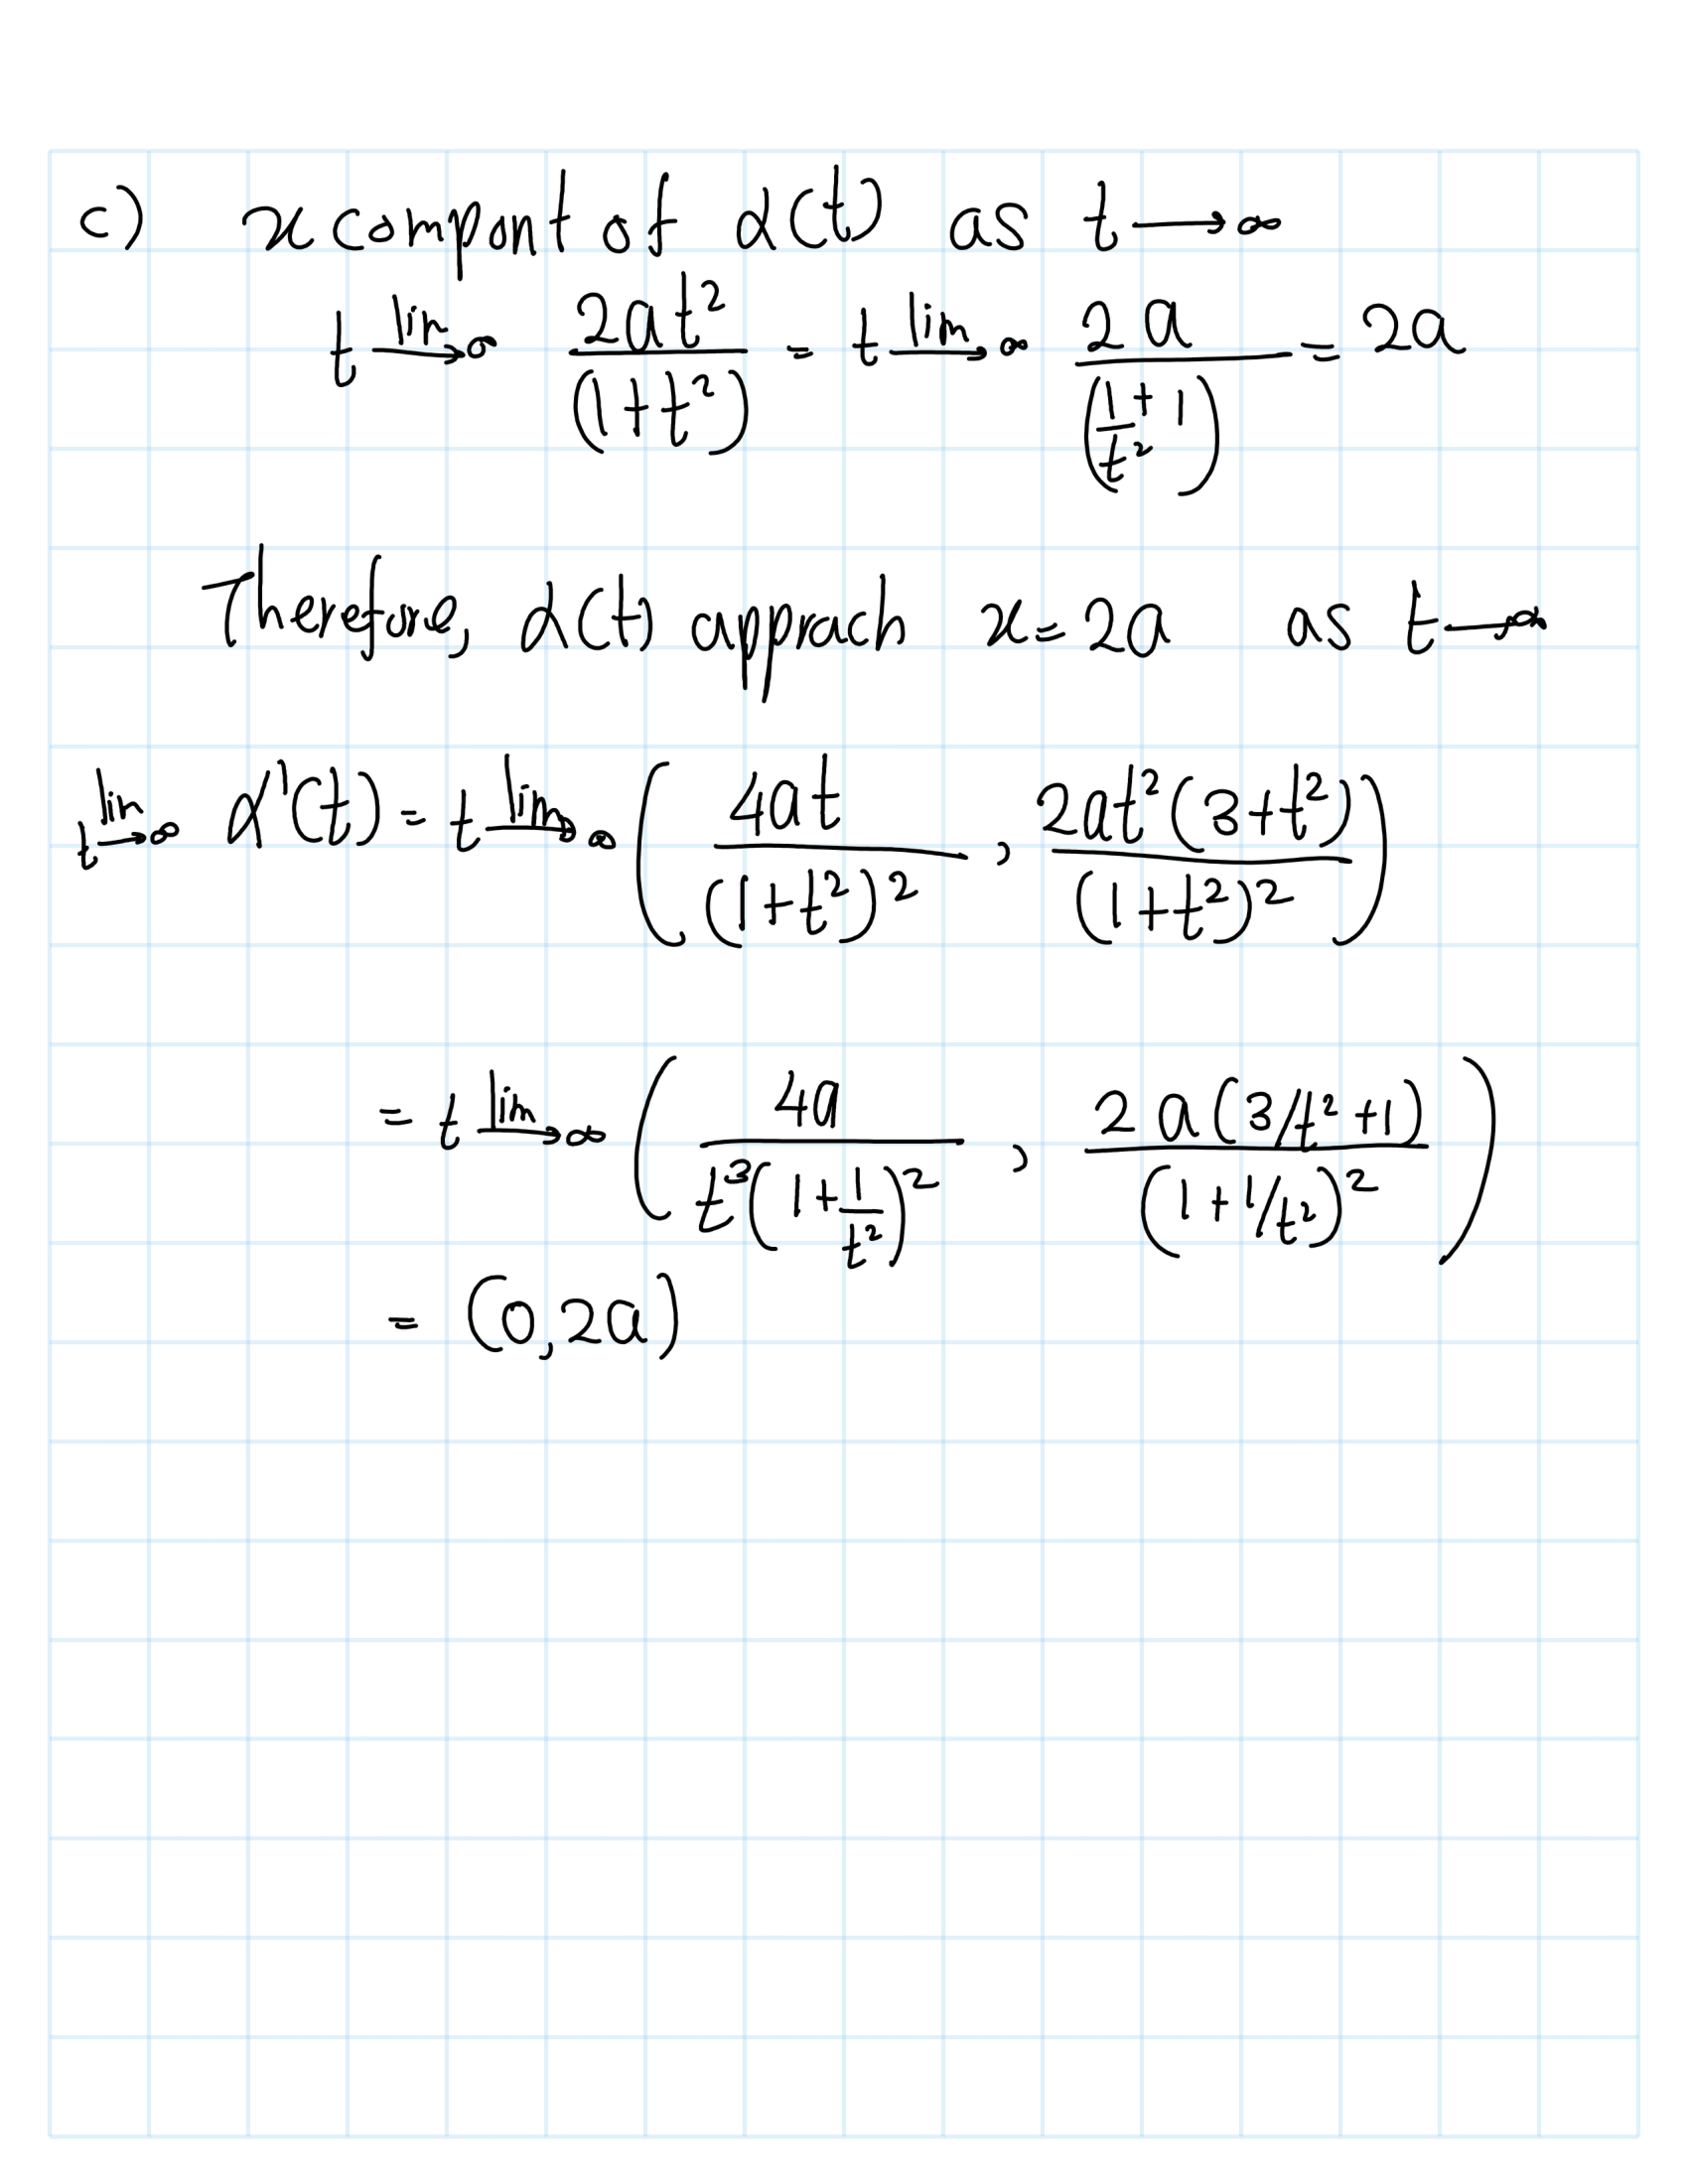 c) x compont of α(t) as t→∞
lim t→∞ 2at²/(1+t²) = lim t→∞ 2a/(1/t²+1) = 2a
Therefore, α(t) apprach x=2a as t→∞
lim t→∞ α'(t) = lim t→∞ (4at/(1+t²)², 2at²(3+t²)/(1+t²)²)
= lim t→∞ (4a/t³(1+1/t²)², 2a(3/t²+1)/(1+1/t²)²)
= (0,2a)